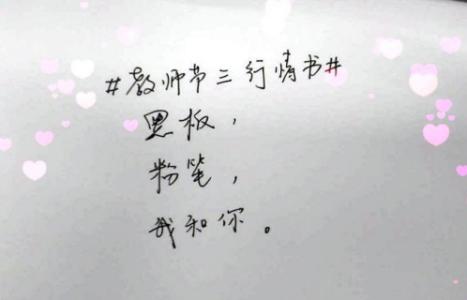 #教师节三行情书#
黑板，
粉笔，
我和你。